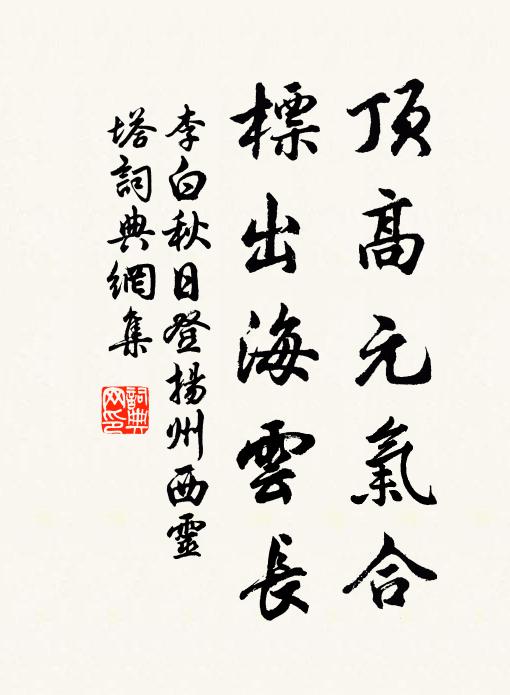 頂高元氣合
標出海雲長
李白秋日登揚州西靈
塔詞典網集
詞典
网印